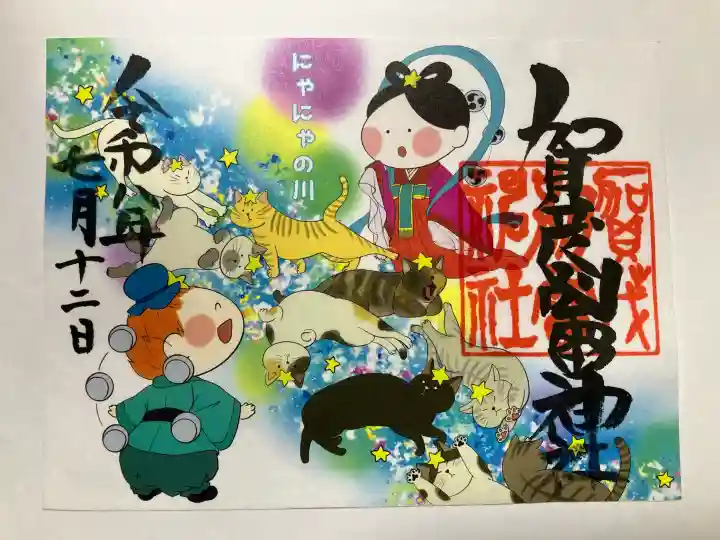 賀茂別雷神社
賀茂
別雷
神社
にゃにゃの川
令和八年
七月十二日